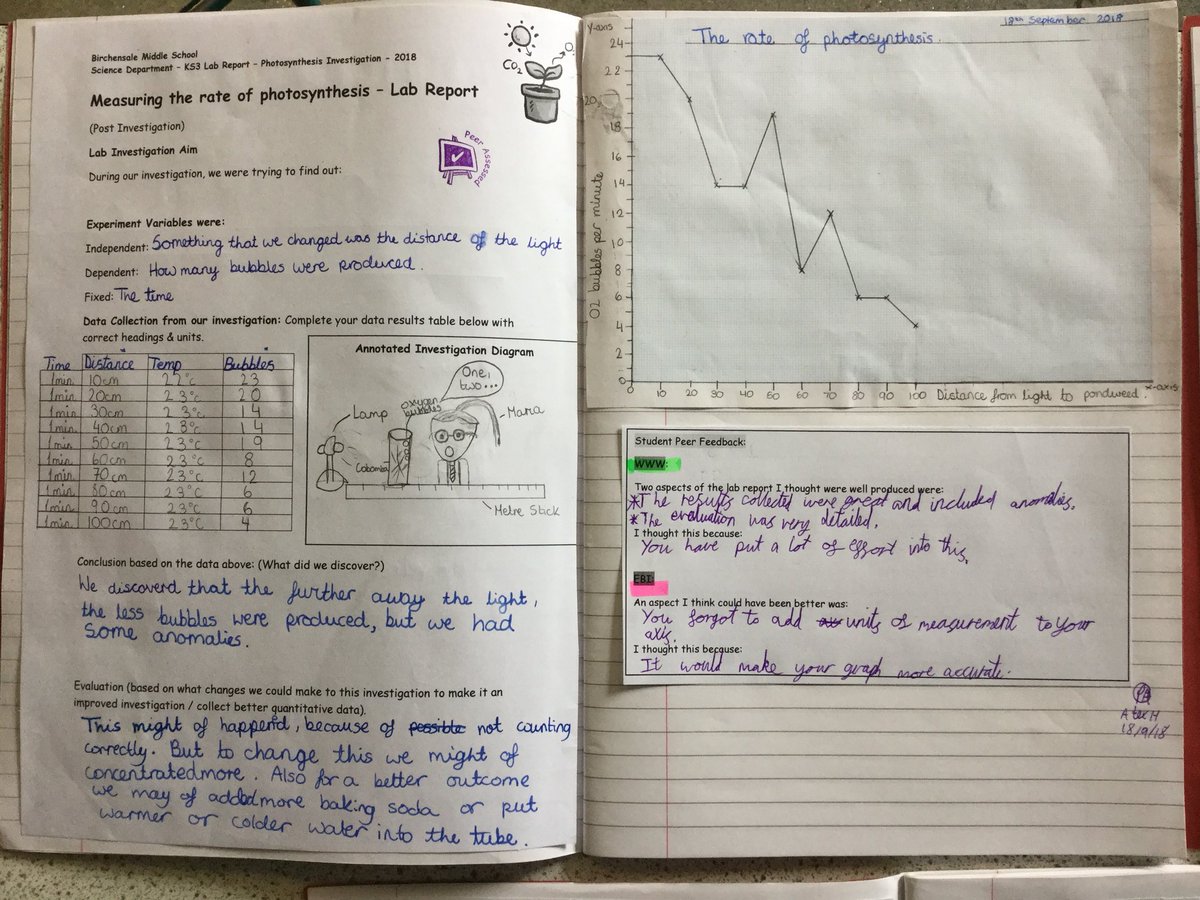 Birchensale Middle School
Science Department – KS3 Lab Report – Photosynthesis Investigation – 2018
CO2
Measuring the rate of photosynthesis – Lab Report
(Post Investigation)
Peer Assessed
Lab Investigation Aim
During our investigation, we were trying to find out:
Experiment Variables were:
Independent: Something that we changed was the distance of the light
Dependent: How many bubbles were produced.
Fixed: The time
Data Collection from our investigation: Complete your data results table below with
correct headings & units.
Time Distance Temp Bubbles
1min 10cm 22°c 23
1min. 20cm 23°c 20
1min. 30cm 23°c 14
1min. 40cm 23°c 14
1min. 50cm 23°c 19
1min. 60cm 23°c 8
1min. 70cm 23°c 12
1min. 80cm 23°c 6
1min. 90cm 23°c 6
1min. 100cm 23°c 4
Annotated Investigation Diagram
One,
two...
oxygen
bubbles
Lamp
Maria
Cabomba
Metre Stick
Conclusion based on the data above: (What did we discover?)
We discoverd that the further away the light,
the less bubbles were produced, but we had
some anomalies.
Evaluation (based on what changes we could make to this investigation to make it an
improved investigation / collect better quantitative data).
This might of happend, because of possible not counting
correctly. But to change this we might of
concentrated more. Also for a better outcome
we may of added more baking soda or put
warmer or colder water into the tube.
18th September 2018
y-axis
The rate of photosynthesis.
24
22
20
18
16
14
12
10
8
6
4
2
0
O2 bubbles per minute
0 10 20 30 40 50 60 70 80 90 100
x-axis
Distance from light to pondweed.
Student Peer Feedback:
WWW:
Two aspects of the lab report I thought were well produced were:
*The results collected were great and included anomalies.
*The evaluation was very detailed.
I thought this because:
You have put a lot of effort into this.
EBI:
An aspect I think could have been better was:
You forgot to add units of measurement to your
axis.
I thought this because:
It would make your graph more accurate.
18/9/18